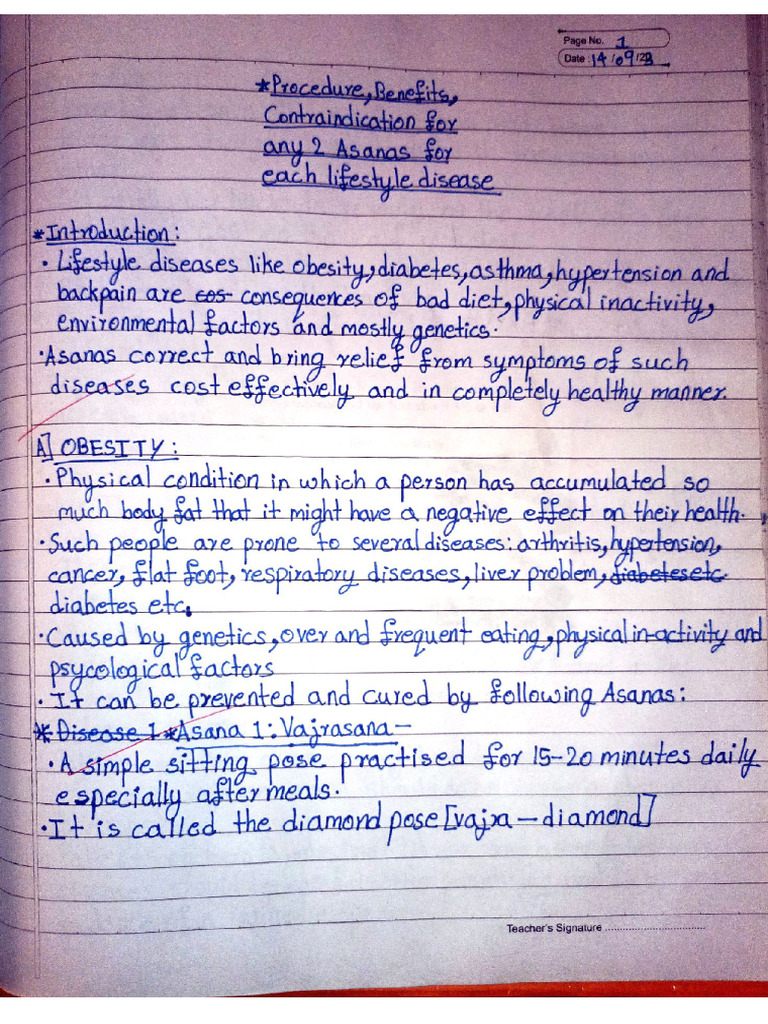 Page No. 1
Date : 14/09/23
*Procedure, Benefits,
Contraindication for
any 2 Asanas for
each lifestyle disease
*Introduction:
• Lifestyle diseases like obesity, diabetes, asthma, hypertension and
backpain are cos- consequences of bad diet, physical inactivity,
environmental factors and mostly genetics.
• Asanas correct and bring relief from symptoms of such
diseases cost effectively and in completely healthy manner.
A] OBESITY:
• Physical condition in which a person has accumulated so
much body fat that it might have a negative effect on their health.
• Such people are prone to several diseases: arthritis, hypertension,
cancer, flat foot, respiratory diseases, liver problem, diabetes etc.
diabetes etc.
• Caused by genetics, over and frequent eating, physical in-activity and
psycological factors
• It can be prevented and cured by following Asanas:
* Disease 1 * Asana 1: Vajrasana -
• A simple sitting pose practised for 15-20 minutes daily
especially after meals.
• It is called the diamond pose [vajra - diamond]
Teacher's Signature ..................................